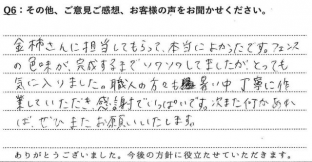 Q6：その他、ご意見ご感想、お客様の声をお聞かせください。
金柿さんに担当してもらって、本当によかったです。フェンス
の色味が、完成するまでソワソワしてましたが、とっても
気に入りました。職人の方々も暑い中丁寧に作
業していただき感謝でいっぱいです。次また何かあれ
ば、ぜひまたお願いいたします。
ありがとうございました。今後の方針に役立たせていただきます。